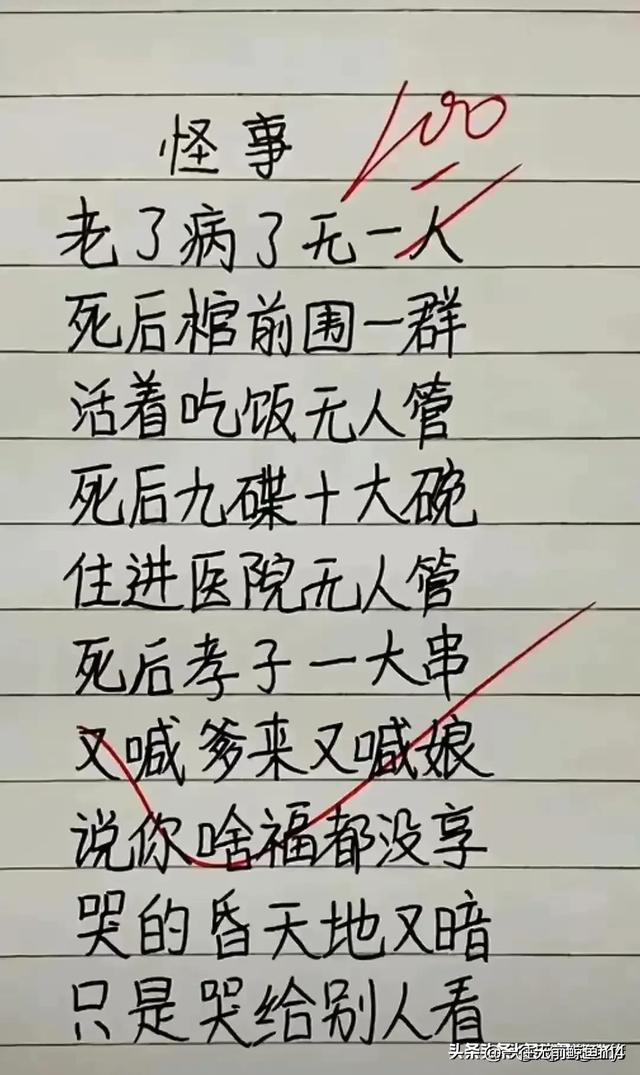 怪事
100
老了病了无一人
死后棺前围一群
活着吃饭无人管
死后九碟十大碗
住进医院无人管
死后孝子一大串
又喊爹来又喊娘
说你啥福都没享
哭的昏天地又暗
只是哭给别人看